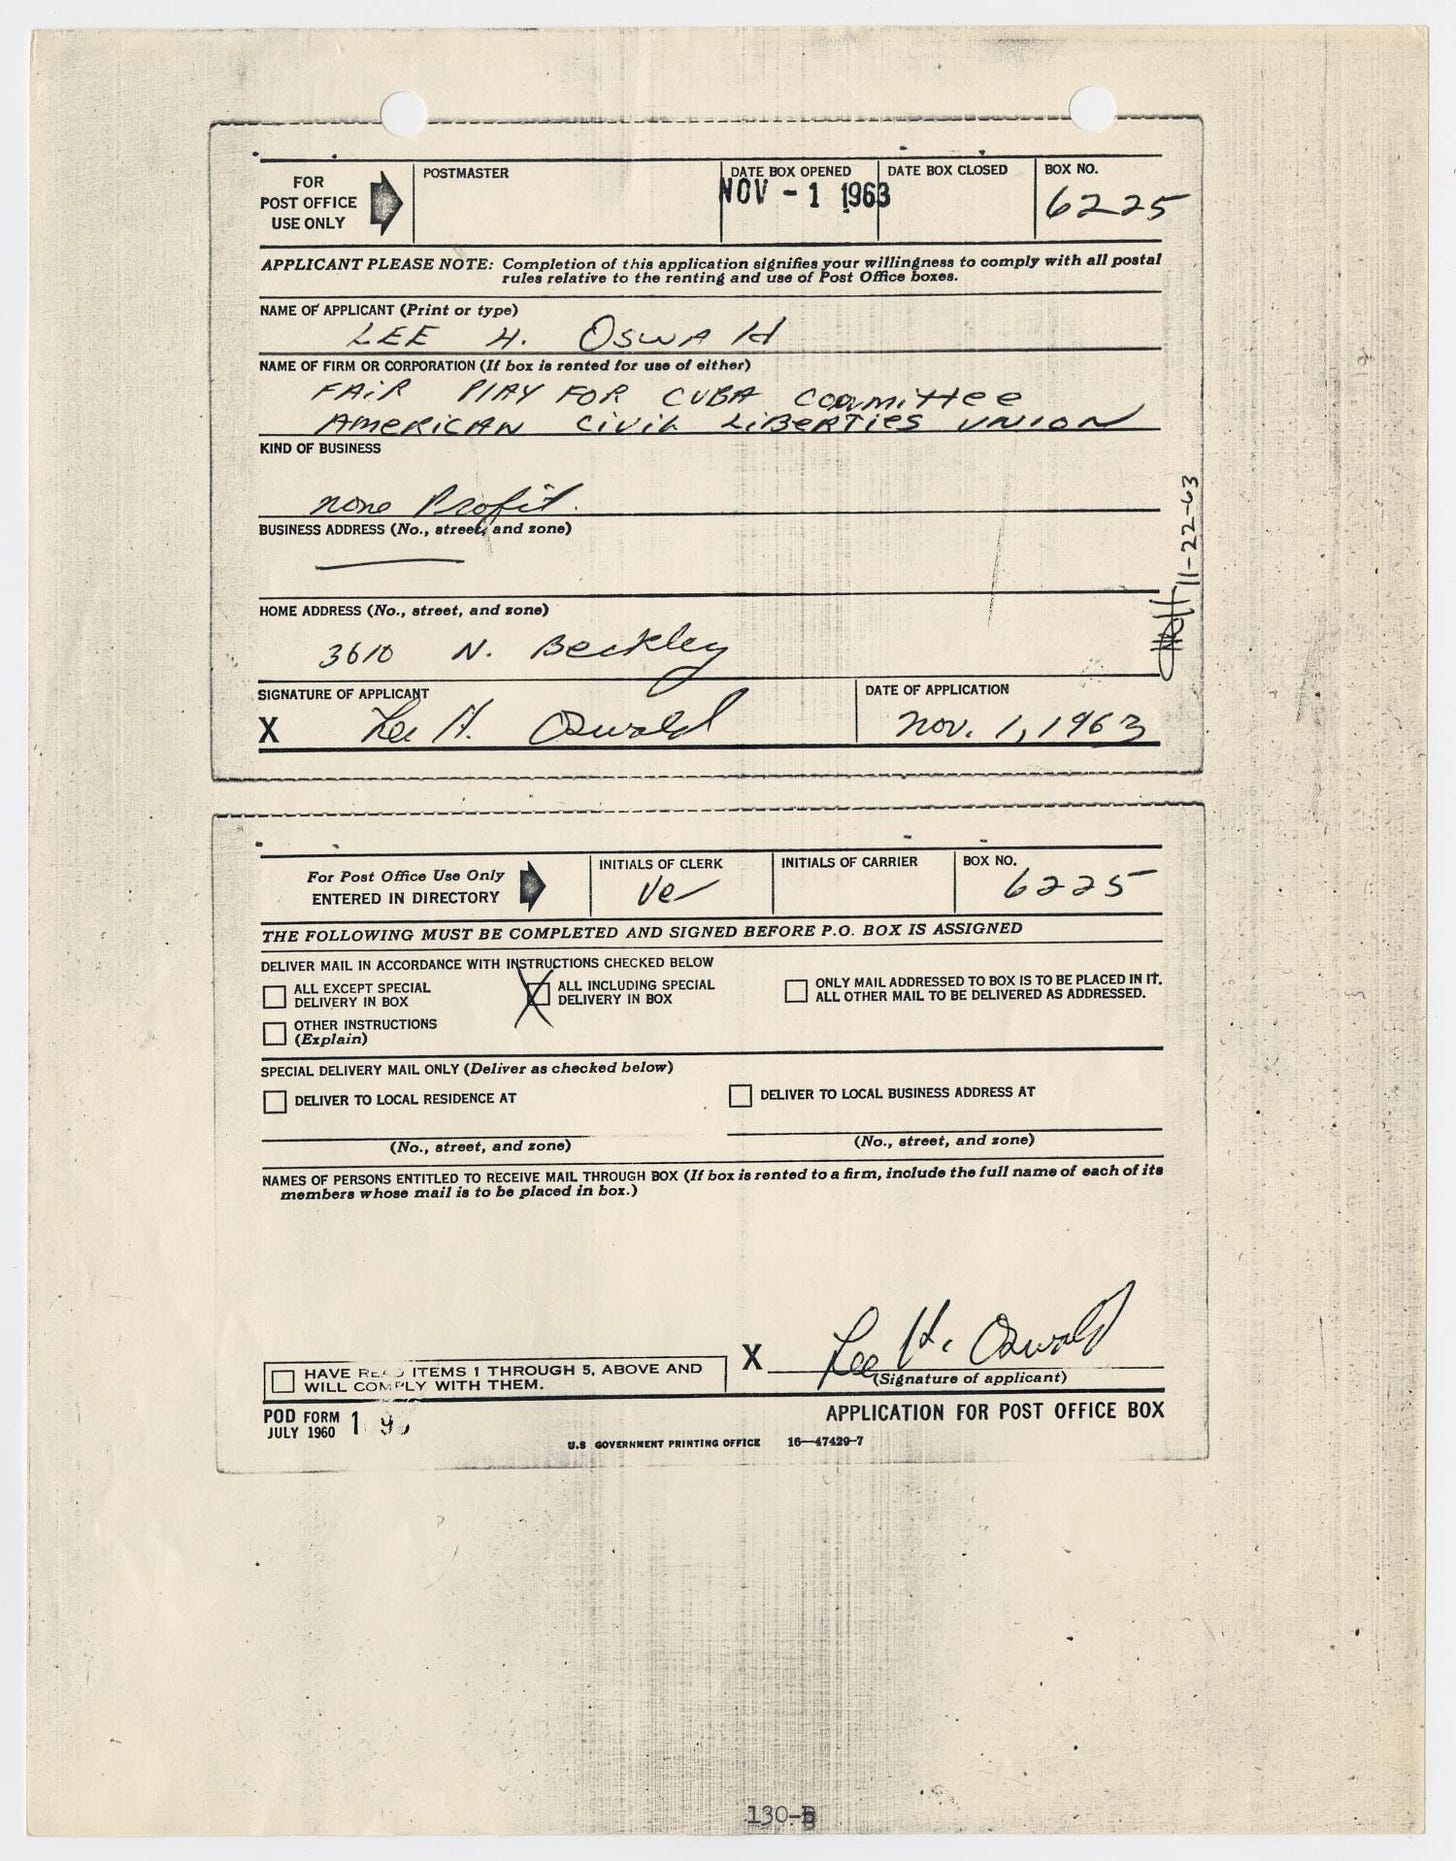 FOR
POST OFFICE
USE ONLY
POSTMASTER
DATE BOX OPENED
NOV - 1 1963
DATE BOX CLOSED
BOX NO.
6225
APPLICANT PLEASE NOTE: Completion of this application signifies your willingness to comply with all postal
rules relative to the renting and use of Post Office boxes.
NAME OF APPLICANT (Print or type)
LEE H. OSWALd
NAME OF FIRM OR CORPORATION (If box is rented for use of either)
FAiR PlAY FOR CUBA Committee
AMERiCAN CiViL LiBERTiES UNION
KIND OF BUSINESS
none Profit.
BUSINESS ADDRESS (No., street, and zone)
HOME ADDRESS (No., street, and zone)
3610 N. Beckley
11-22-63
SIGNATURE OF APPLICANT
X Lee H. Oswald
DATE OF APPLICATION
Nov. 1, 1963
For Post Office Use Only
ENTERED IN DIRECTORY
INITIALS OF CLERK
INITIALS OF CARRIER
BOX NO.
6225
THE FOLLOWING MUST BE COMPLETED AND SIGNED BEFORE P.O. BOX IS ASSIGNED
DELIVER MAIL IN ACCORDANCE WITH INSTRUCTIONS CHECKED BELOW
ALL EXCEPT SPECIAL
DELIVERY IN BOX
X ALL INCLUDING SPECIAL
DELIVERY IN BOX
ONLY MAIL ADDRESSED TO BOX IS TO BE PLACED IN IT.
ALL OTHER MAIL TO BE DELIVERED AS ADDRESSED.
OTHER INSTRUCTIONS
(Explain)
SPECIAL DELIVERY MAIL ONLY (Deliver as checked below)
DELIVER TO LOCAL RESIDENCE AT
DELIVER TO LOCAL BUSINESS ADDRESS AT
(No., street, and zone)
(No., street, and zone)
NAMES OF PERSONS ENTITLED TO RECEIVE MAIL THROUGH BOX (If box is rented to a firm, include the full name of each of its
members whose mail is to be placed in box.)
X Lee H. Oswald
(Signature of applicant)
HAVE READ ITEMS 1 THROUGH 5, ABOVE AND
WILL COMPLY WITH THEM.
POD FORM
JULY 1960
APPLICATION FOR POST OFFICE BOX
U.S GOVERNMENT PRINTING OFFICE 16—47429-7
130-B